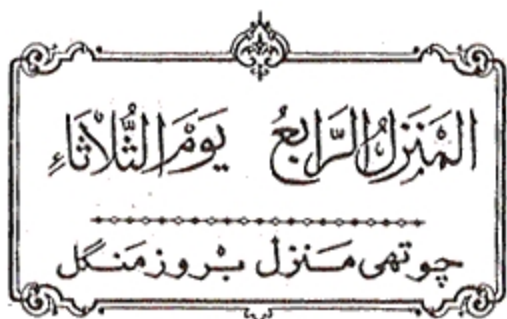 المَنْزِلُ الرَّابِعُ يَوْمَ الثُّلَاثَاءِ
چوتھی مَنزل بروز مَنگل